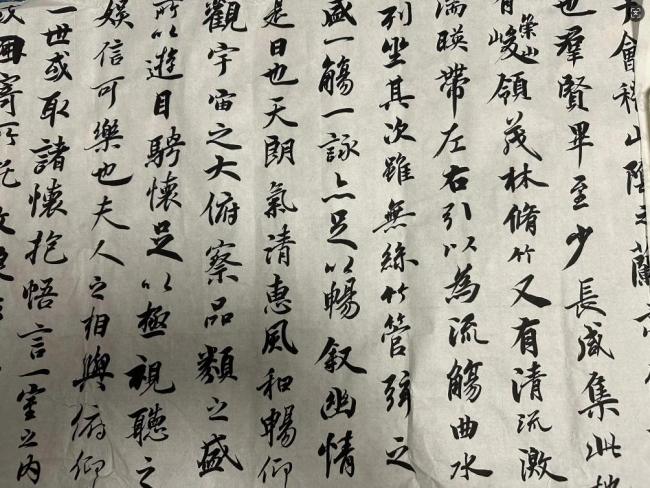 會稽山陰之蘭
也羣賢畢至少長咸集此地
崇山
有峻領茂林脩竹又有清流激
湍暎帶左右引以為流觴曲水
列坐其次雖無絲竹管弦之
盛一觴一詠亦足以暢叙幽情
是日也天朗氣清惠風和暢仰
觀宇宙之大俯察品類之盛
所以遊目騁懷足以極視聽之
娛信可樂也夫人之相與俯仰
一世或取諸懷抱悟言一室之內
或因寄所託放